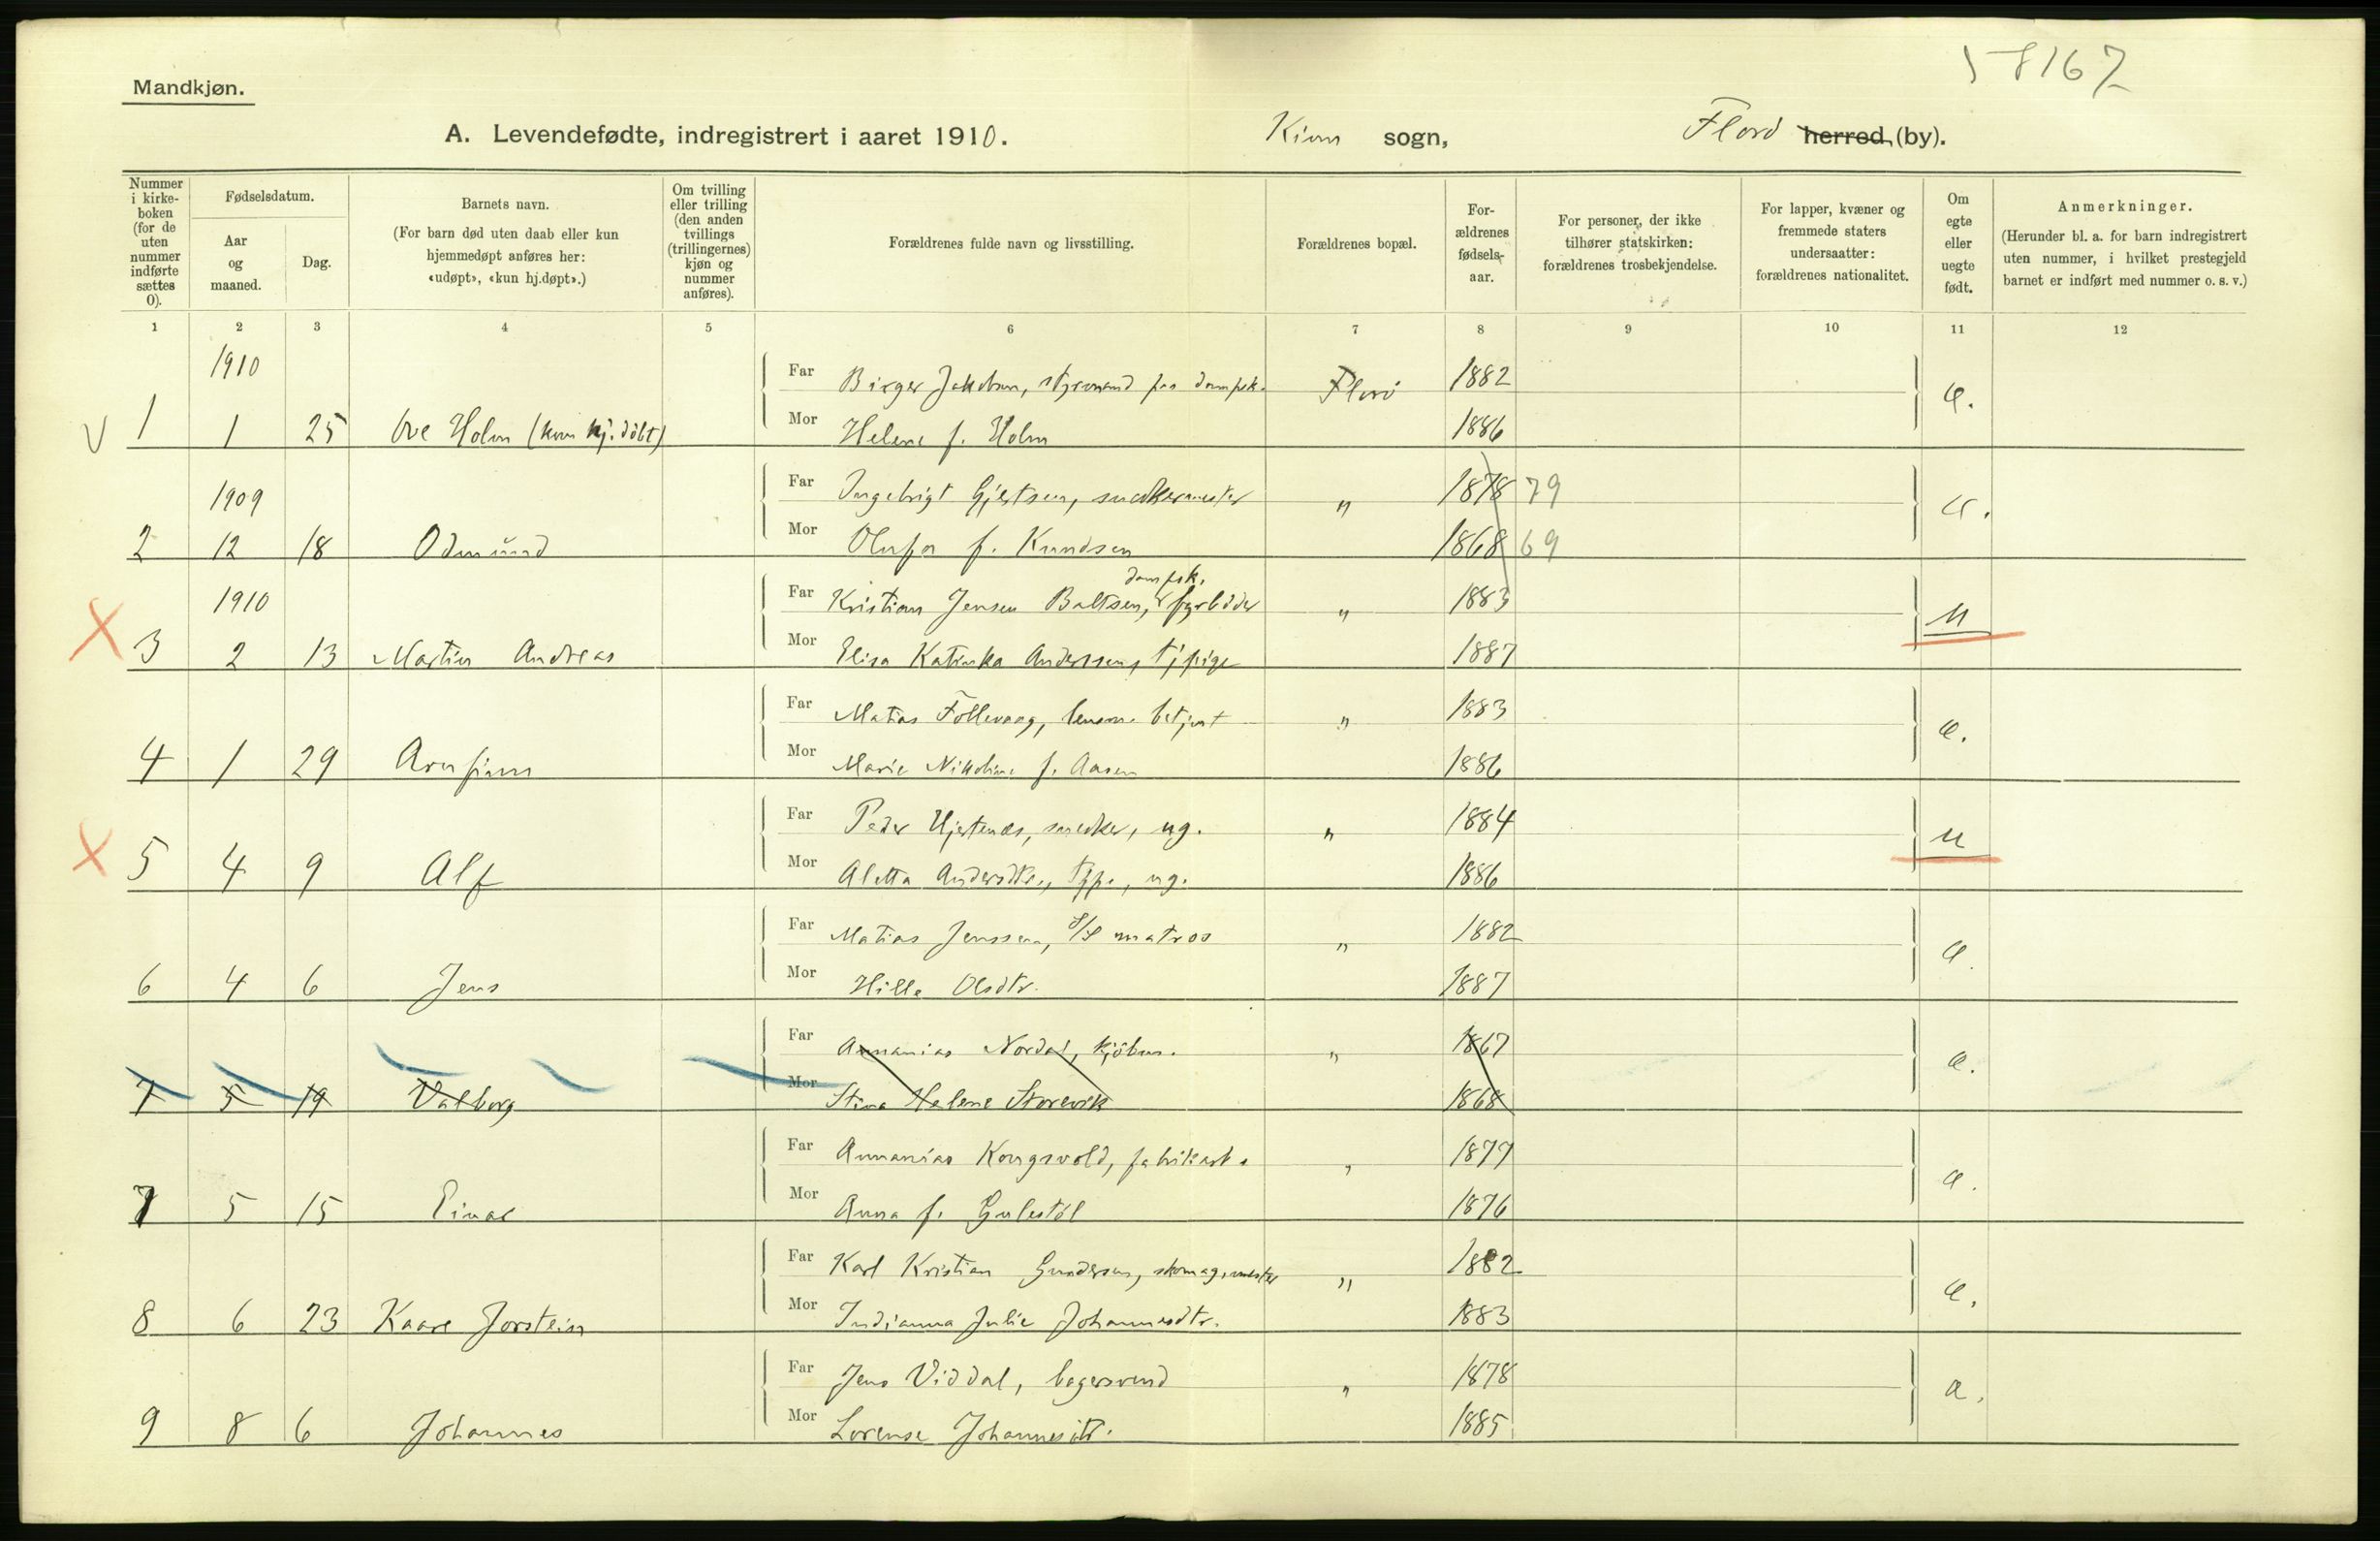 58167
Mandkjøn.
A. Levendefødte, indregistrert i aaret 1910. Kinn sogn, Florø herred (by).
Nummer i kirkeboken (for de uten nummer indførte sættes 0).
Fødselsdatum.
Aar og maaned.
Dag.
Barnets navn.
(For barn død uten daab eller kun hjemmedøpt anføres her: «udøpt», «kun hj.døpt».)
Om tvilling eller trilling (den anden tvillings (trillingernes) kjøn og nummer anføres).
Forældrenes fulde navn og livsstilling.
Forældrenes bopæl.
For-ældrenes fødsels-aar.
For personer, der ikke tilhører statskirken: forældrenes trosbekjendelse.
For lapper, kvæner og fremmede staters undersaatter: forældrenes nationalitet.
Om egte eller uegte født.
Anmerkninger.
(Herunder bl. a. for barn indregistrert uten nummer, i hvilket prestegjeld barnet er indført med nummer o. s. v.)
1 2 3 4 5 6 7 8 9 10 11 12
1910 Far Birger Jakobsen, styrmand paa dampsk. Florø 1882 e.
V 1 1 25 Ove Holm (kun hj. döbt) Mor Helene f. Holm 1886
1909 Far Ingebrigt Gjertsen, snedkermester " 1878 79 e.
2 12 18 Odmund Mor Olufa f. Knudsen 1868 69
1910 Far Kristian Jensen Baltsen, dampsk. fyrböder " 1883 u
X 3 2 13 Martin Andreas Mor Elisa Katinka Anderssen, tj.pige 1887
Far Matias Follevaag, lensm. betjent " 1883 e.
4 1 29 Arnfinn Mor Marie Nikoline f. Aasen 1886
Far Peder Hjertenæs, snedker, ug. " 1884 u
X 5 4 9 Alf Mor Aletta Andersdtr., tjp., ug. 1886
Far Matias Jenssen, S/S matros " 1882 e.
6 4 6 Jens Mor Hilla Olsdtr. 1887
Far Annanias Nordal, kjöbm. " 1867 e.
7 5 19 Valborg Mor Stina Helene Storevik 1868
Far Annanias Kongsvold, fabrikarb. " 1877 e.
7 5 15 Einar Mor Anna f. Gulestöl 1876
Far Karl Kristian Gundersen, skomag.mester " 1882 e.
8 6 23 Kaare Jorstein Mor Indianna Julie Johannesdtr. 1883
Far Jens Viddal, bagersvend " 1878 e.
9 8 6 Johannes Mor Lorense Johannesdtr. 1885